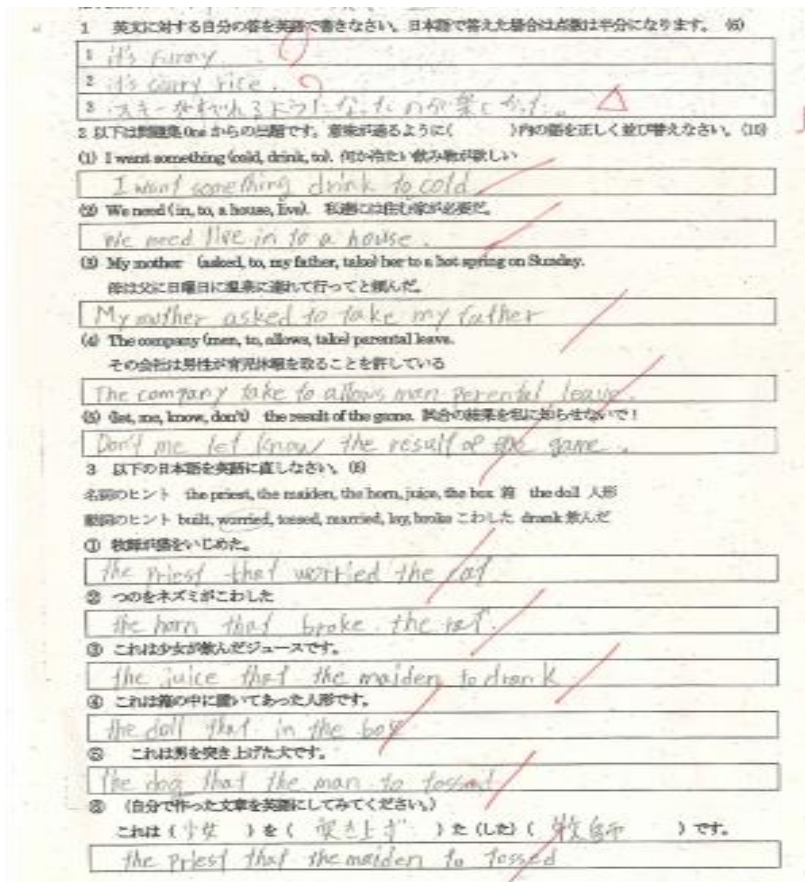 1 英文に対する自分の答を英語で書きなさい。日本語で答えた場合は点数は半分になります。 (6)
1 it's funny.
2 it's carry rice.
3 スキーをすべれるようになったのが楽しかった。
2 以下は問題集 One からの出題です。意味が通るように( )内の語を正しく並び替えなさい。(10)
(1) I want something (cold, drink, to). 何か冷たい飲み物が欲しい
I want something drink to cold
(2) We need (in, to, a house, live). 私達には住む家が必要だ。
We need live in to a house.
(3) My mother (asked, to, my father, take) her to a hot spring on Sunday.
母は父に日曜日に温泉に連れて行ってと頼んだ。
My mother asked to take my father
(4) The company (men, to, allows, take) parental leave.
その会社は男性が育児休暇を取ることを許している
The company take to allows man perental leave.
(5) (let, me, know, don't) the result of the game. 試合の結果を私に知らせないで!
Don't me let know the result of the game.
3 以下の日本語を英語に直しなさい。(8)
名詞のヒント the priest, the maiden, the horn, juice, the box 箱 the doll 人形
動詞のヒント built, worried, tossed, married, lay, broke こわした drank 飲んだ
① 牧師が猫をいじめた。
the priest that worried the cat
② つのをネズミがこわした
the horn that broke the rat.
③ これは少女が飲んだジュースです。
the juice that the maiden to drank
④ これは箱の中に置いてあった人形です。
the doll that in the box
⑤ これは男を突き上げた犬です。
the dog that the man to tossed
⑥ (自分で作った文章を英語にしてみてください。)
これは (少女) を (突き上げ) た (した) (牧師) です。
the priest that the maiden to tossed